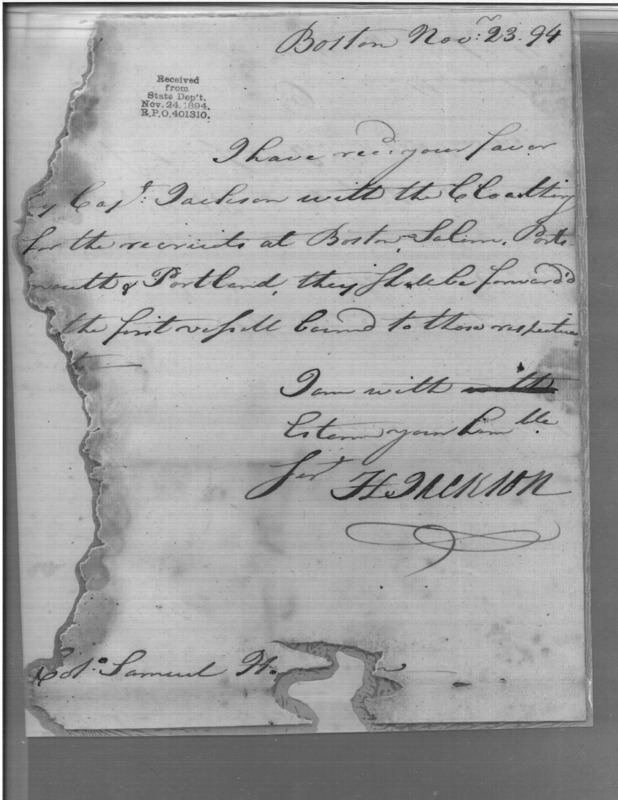 Boston Nov.r 23. 94
Received
from
State Dep't.
Nov. 24. 1894.
R.P.O. 401310.
I have recd. your favor
y Capt. Jackson with the Cloathing
for the recruits at Boston, Salem, Ports
mouth & Portland, they shall be forward'd
the first vessell bound to those respective
I am with
Esteem your humble
Sert
H. JACKSON
Colo. Samuel H